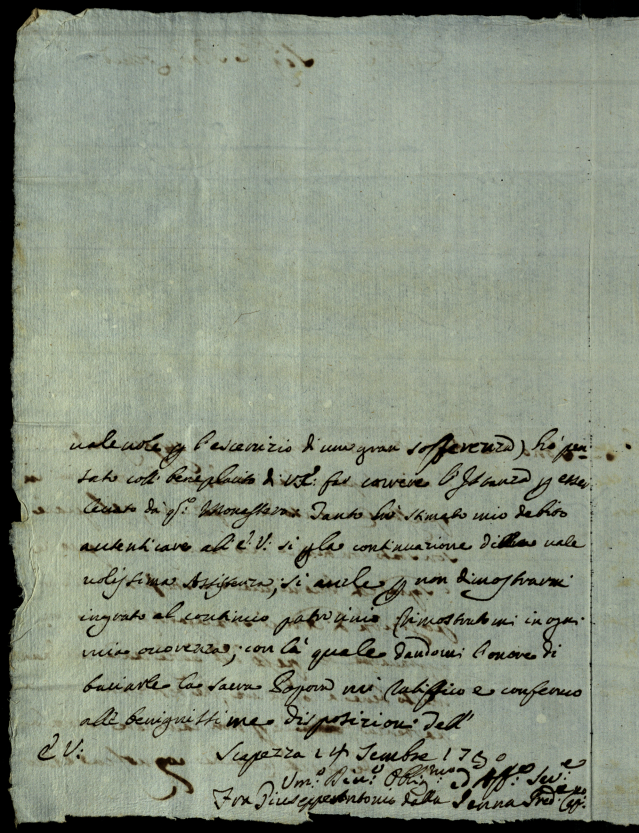 valevole p l'esercizio di una gran sofferenza) hò pen-
sato coll beneplacito di V.E: far correre l'Istanza p esser
levato da qto Monastero: Tanto hò stimato mio debito
autenticare all' E.V: si p la continuazione della vale
volissima Assistenza, si anche p non dimostrarmi
ingrato al continuo patrocinio dimostratomi in ogni
mia occorenza; con la quale dandomi l'onore di
baciarle la Sacra Porpora mi ratifico e confermo
alle benignissime disposizioni dell'
E V:
Scapezza 14 Sembre 1730
Umo Divo Obbmo ed Affo Sere
Fra Giuseppe Antonio dalla Penna Pred Capp.